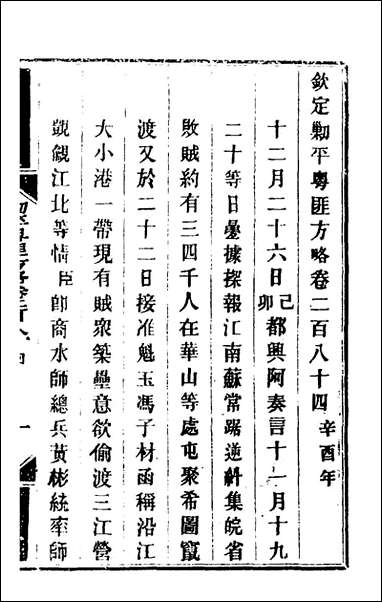 欽定剿平粵匪方略卷二百八十四 辛酉年
十二月二十六日己卯都興阿奏言十一月十九
二十等日疊據探報江南蘇常踞逆糾集皖省
敗賊約有三四千人在華山等處屯聚希圖竄
渡又於二十二日接准魁玉馮子材函稱沿江
大小港一帶現有賊眾築壘意欲偷渡三江營
覬覦江北等情臣卽商水師總兵黃彬統率師